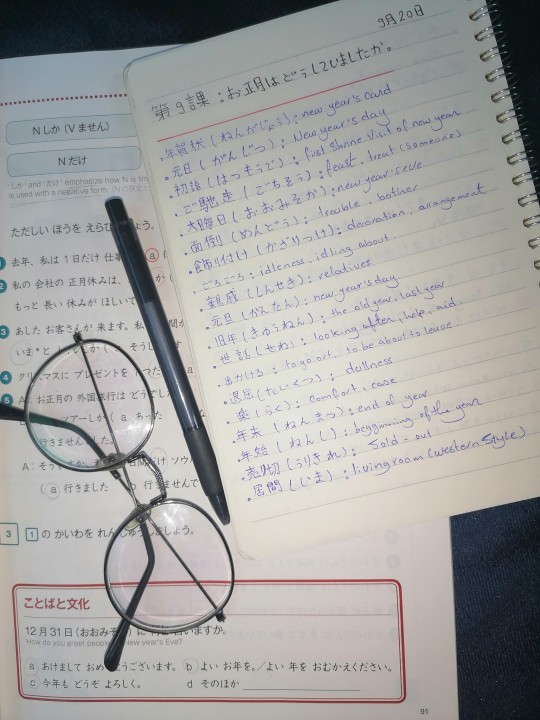 9月20日
第9課：お正月はどうしていましたか。
・年賀状（ねんがじょう）：new year's card
・元日（がんじつ）：New year's day
・初詣（はつもうで）：first shrine visit of new year
・ご馳走（ごちそう）：feast, treat (someone)
・大晦日（おおみそか）：new year's eve
・面倒（めんどう）：trouble, bother
・飾り付け（かざりつけ）：decoration, arrangement
・ごろごろ：idleness, idling about.
・親戚（しんせき）：relatives
・元旦（がんたん）：new year's day
・旧年（きゅうねん）：the old year, last year
・世話（せわ）：looking after, help, aid
・出かける：to go out, to be about to leave
・退屈（たいくつ）：dullness
・楽（らく）：comfort, ease
・年末（ねんまつ）：end of year
・年始（ねんし）：beggining of the year
・売り切れ（うりきれ）：Sold-out
・居間（いま）：living room (western style)
Nしか（Vません）
Nだけ
'しか' and 'だけ' emphasize how N is
is used with a negative form.
ただしい ほうを えらび ょう。
1 去年、私は 1日だけ 仕事 a
2 私の 会社の 正月休みは、
もっと 長い 休みが ほしいで
3 あした お客さんが 来ます。私
いま
4 クリスマスに プレゼントを
5 A：お正月の 外国旅行は どうでし
ツアーしか（ a あった
行きません
A：そう ソウル
（ a 行きました b 行きませんで
3 1 の かいわを れんしゅうしましょう。
ことばと文化
12月31日（おおみそか）に 何と言いますか。
How do you greet people New year's Eve?
a あけまして おめでとうございます。 b よい お年を。／よい 年を おむかえください。
c 今年も どうぞ よろしく。 d そのほか
91